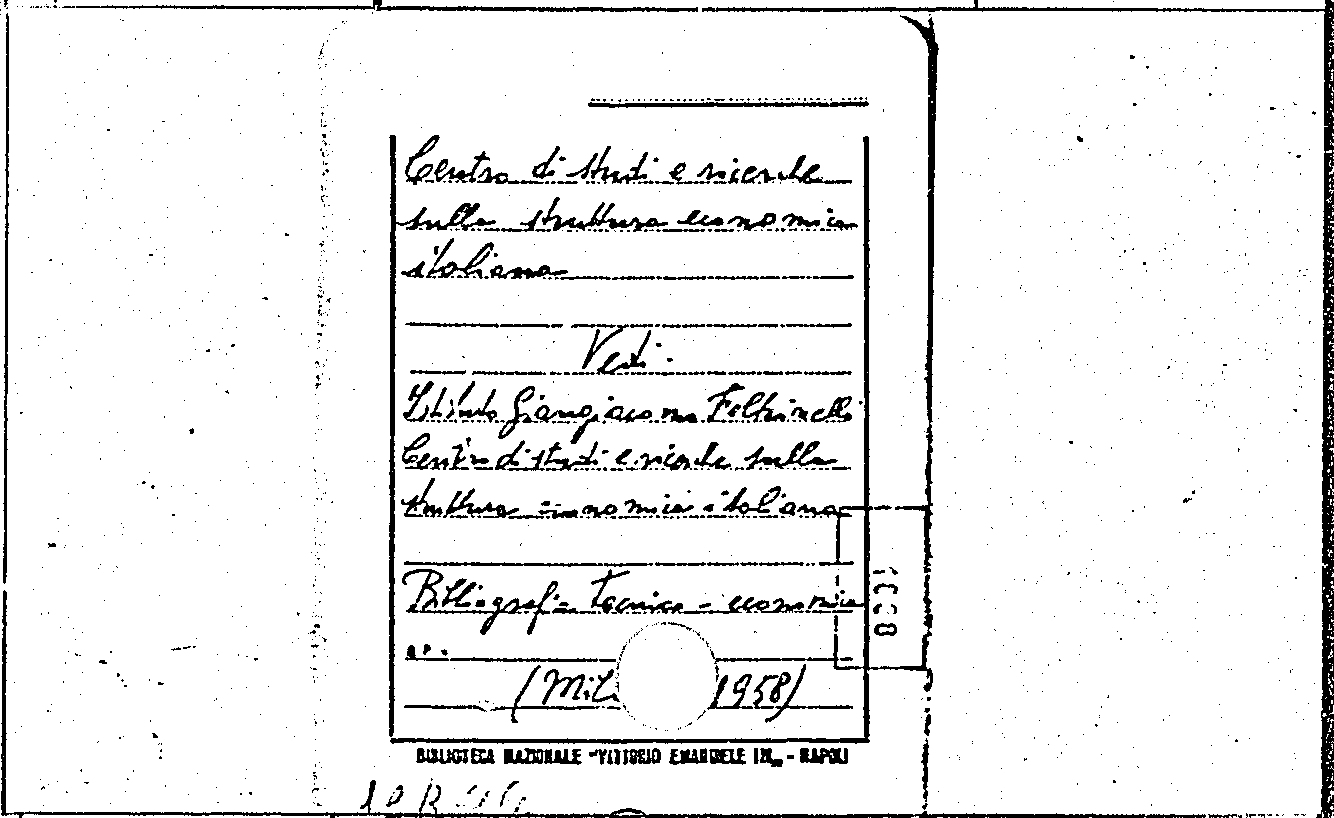 Centro di studi e ricerche
sulla struttura economica
italiana
Vedi:
Istituto Giangiacomo Feltrinelli
Centro di studi e ricerche sulla
struttura economica italiana
Bibliografia Tecnico - economica
...
(Mil 1958)
BIBLIOTECA NAZIONALE "VITTORIO EMANUELE III„ - NAPOLI